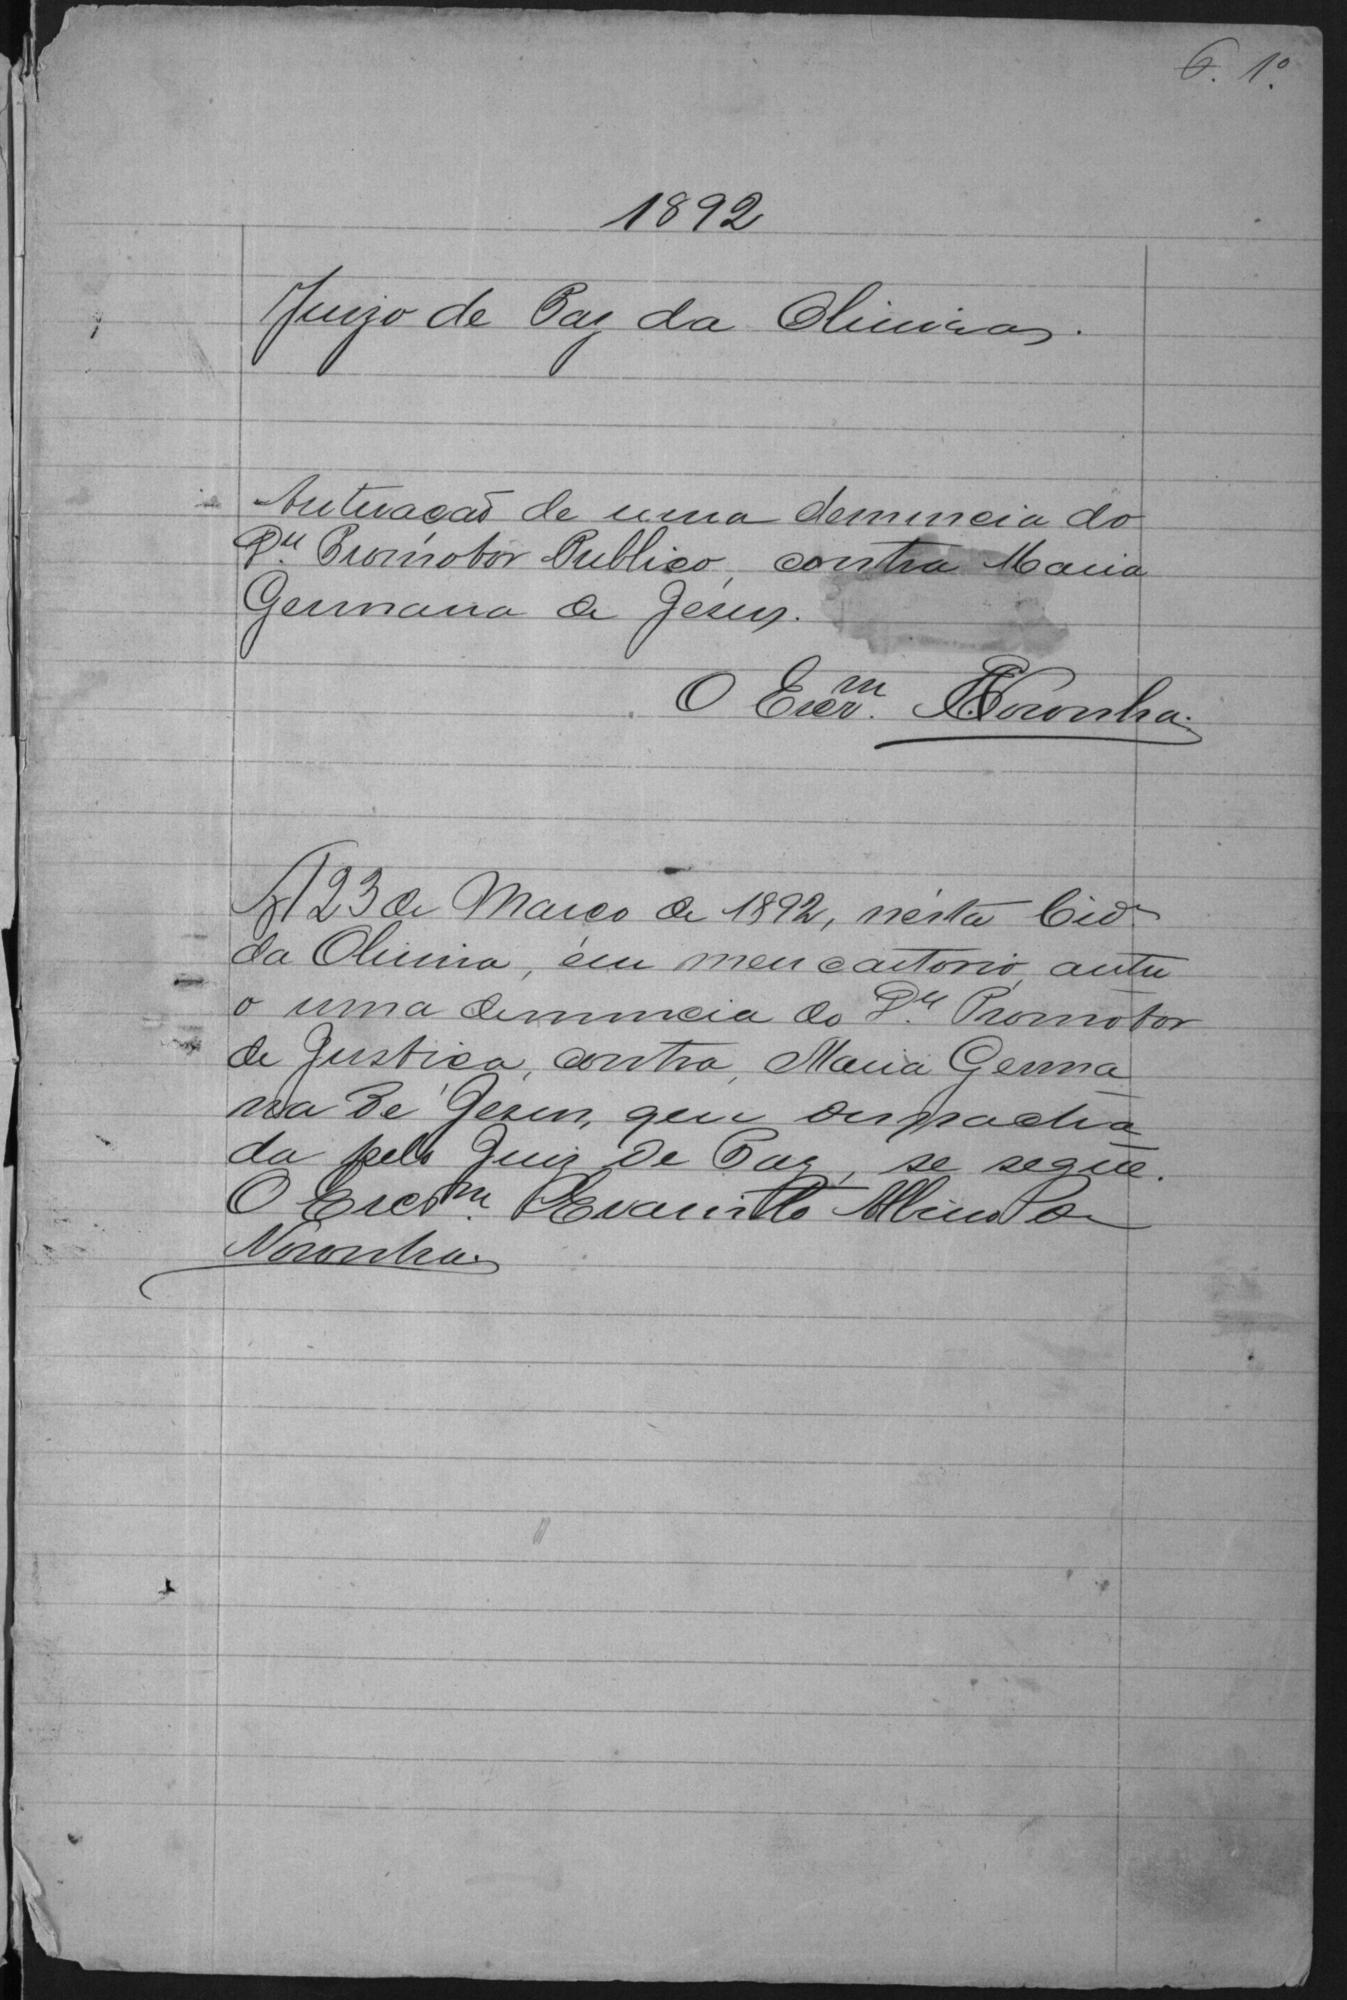 6. 1º.
1892
Juizo de Paz da Oliveira.
Autuação de uma denuncia do
Dr. Promotor Publico, contra Maria
Germana de Jesus.
O Escrm. Noronha.
A 23 de Março de 1892, nésta Cide
da Oliveira, ém meu cartorio, autu
o uma denuncia do Dr. Promotor
de Justiça, contra, Maria Germa
na de Jesus, que despacha
da pelo Juiz de Paz, se segue.
O Escrm. Evaristo Albino de
Noronha.